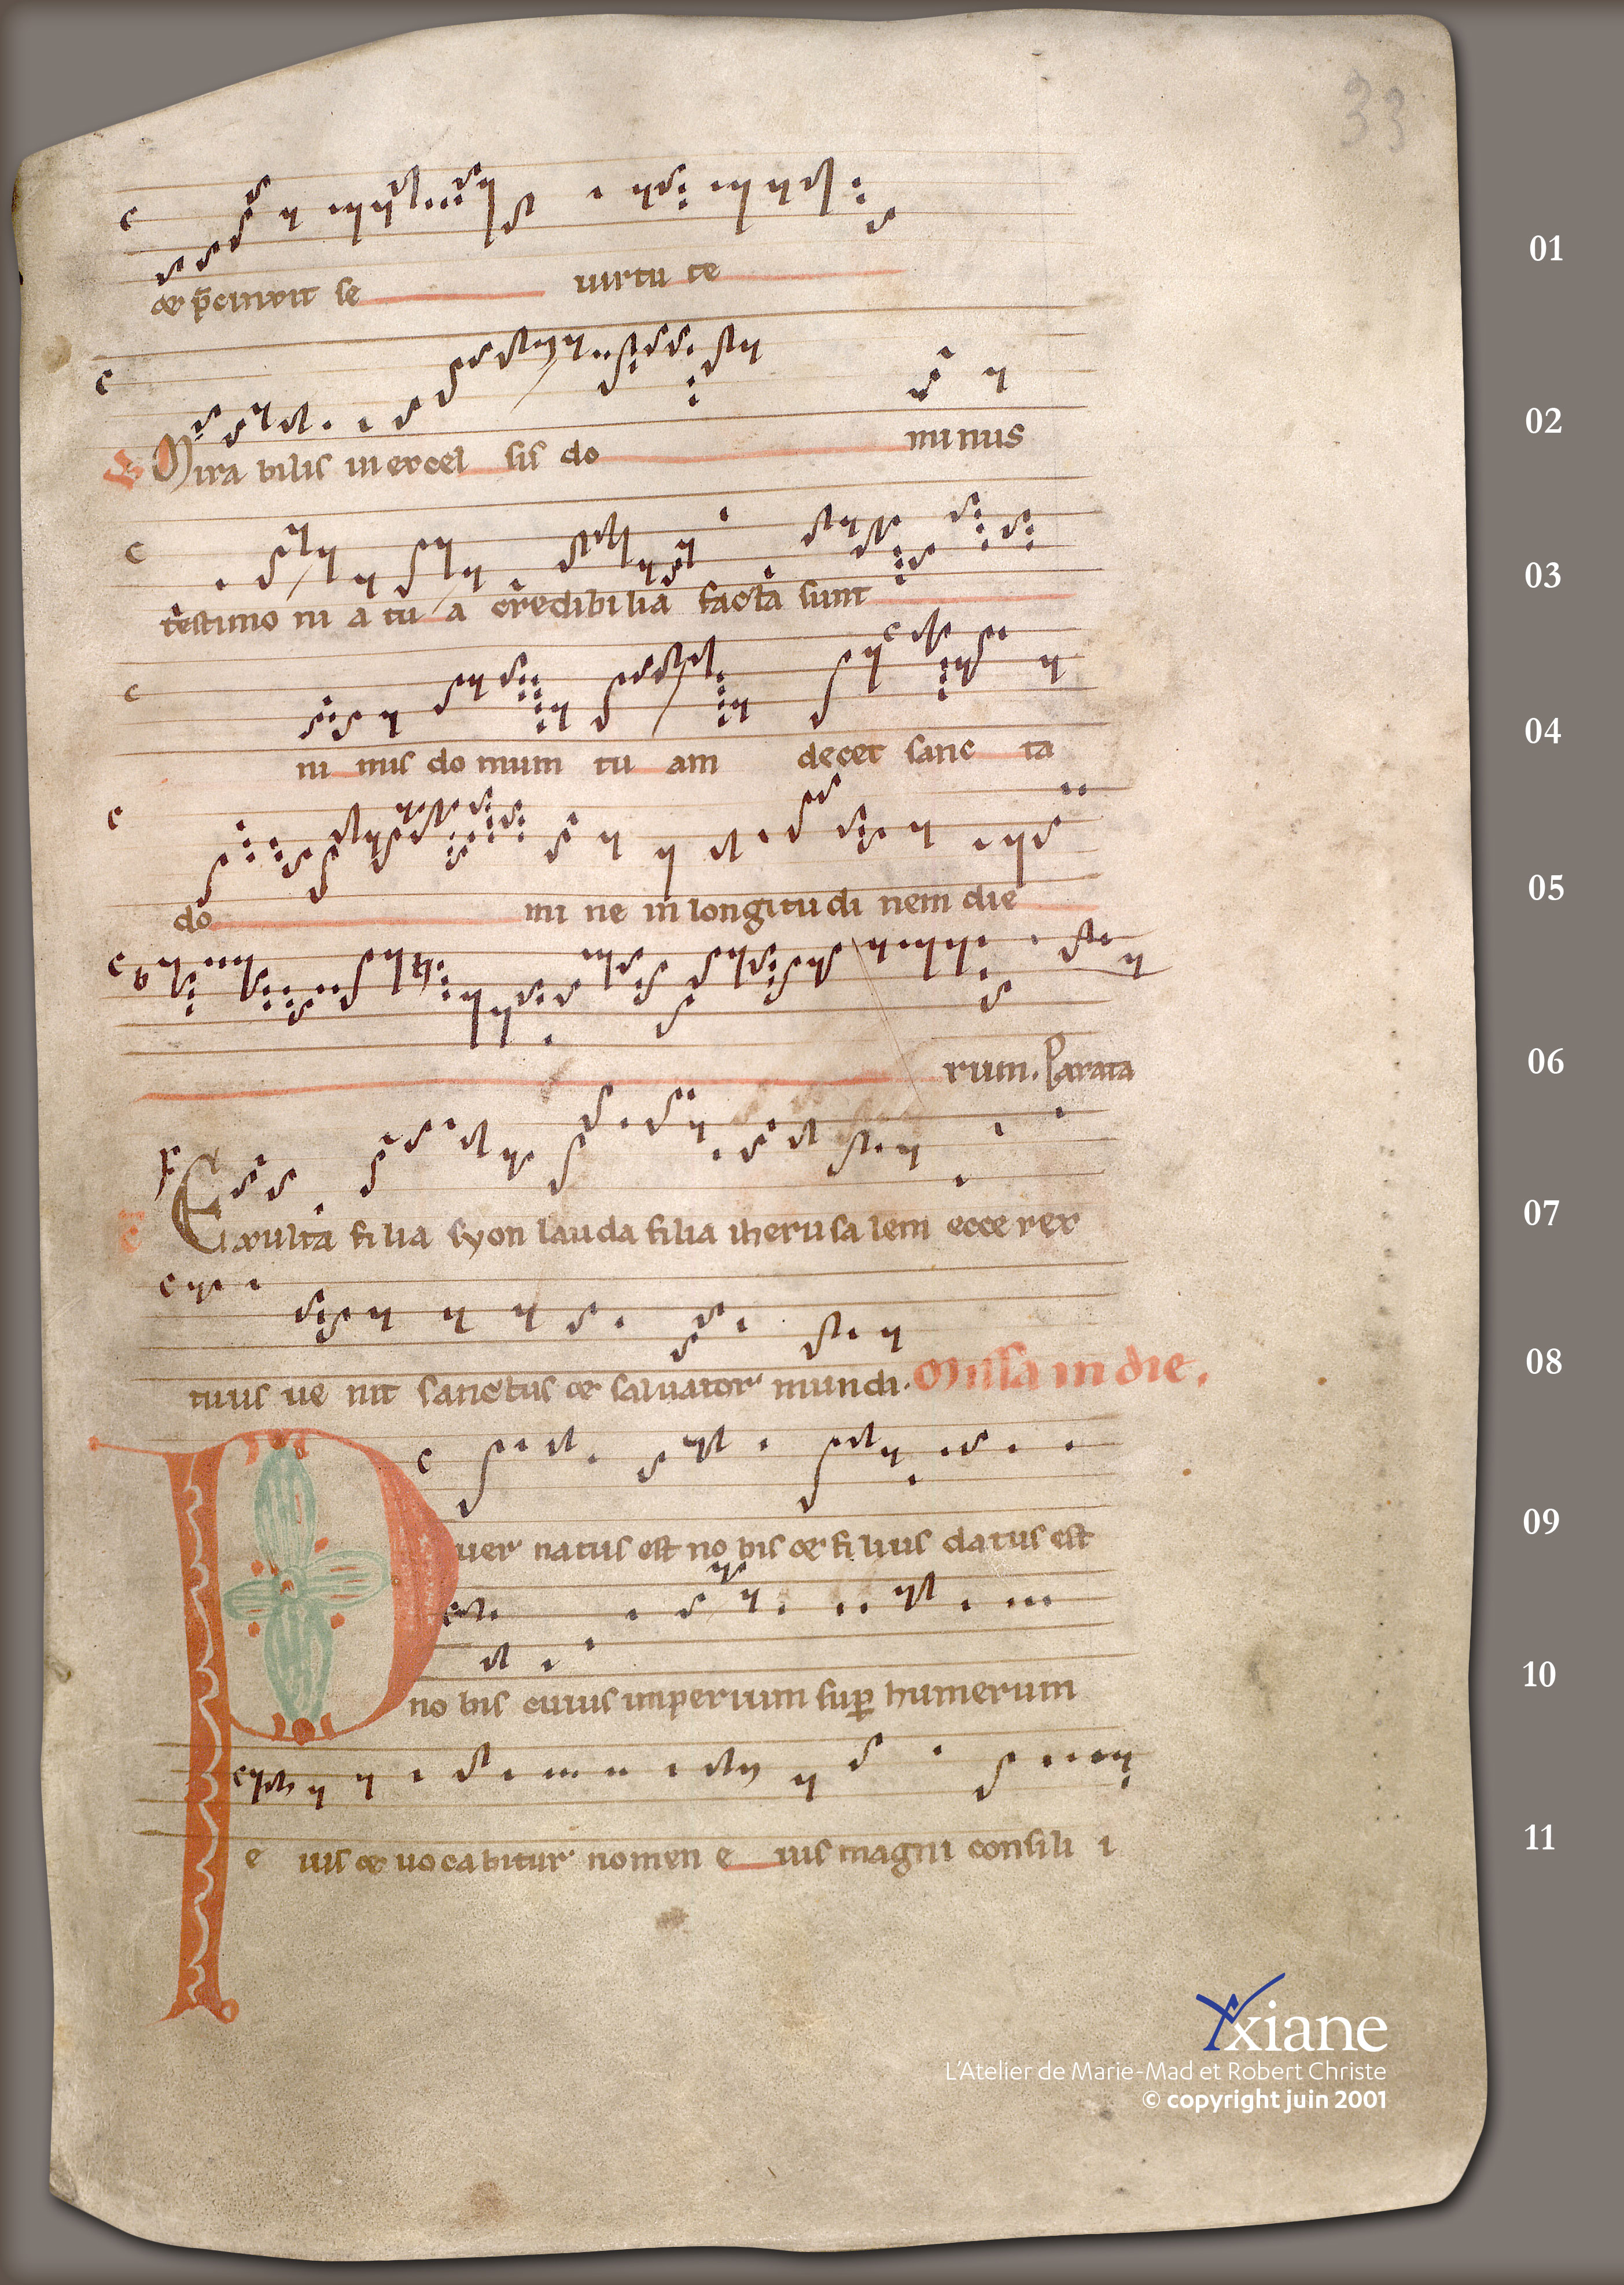 33
01
& p̄cinxit se uirtu te
02
V Mira bilis in excel sis do minus
03
testimo ni a tu a credibilia facta sunt
04
ni mis domum tu am decet sanc ta
05
do mi ne in longitudi nem die
06
rum. Parata
07
Exulta filia syon lauda filia iherusalem ecce rex
08
tuus ue nit sanctus & saluator mundi. Missa in die.
09
Puer natus est no bis & filius datus est
10
no bis cuius imperium sup humerum
11
e ius & uocabitur nomen e ius magni consili i
Yxiane
L'Atelier de Marie-Mad et Robert Christe
© copyright juin 2001